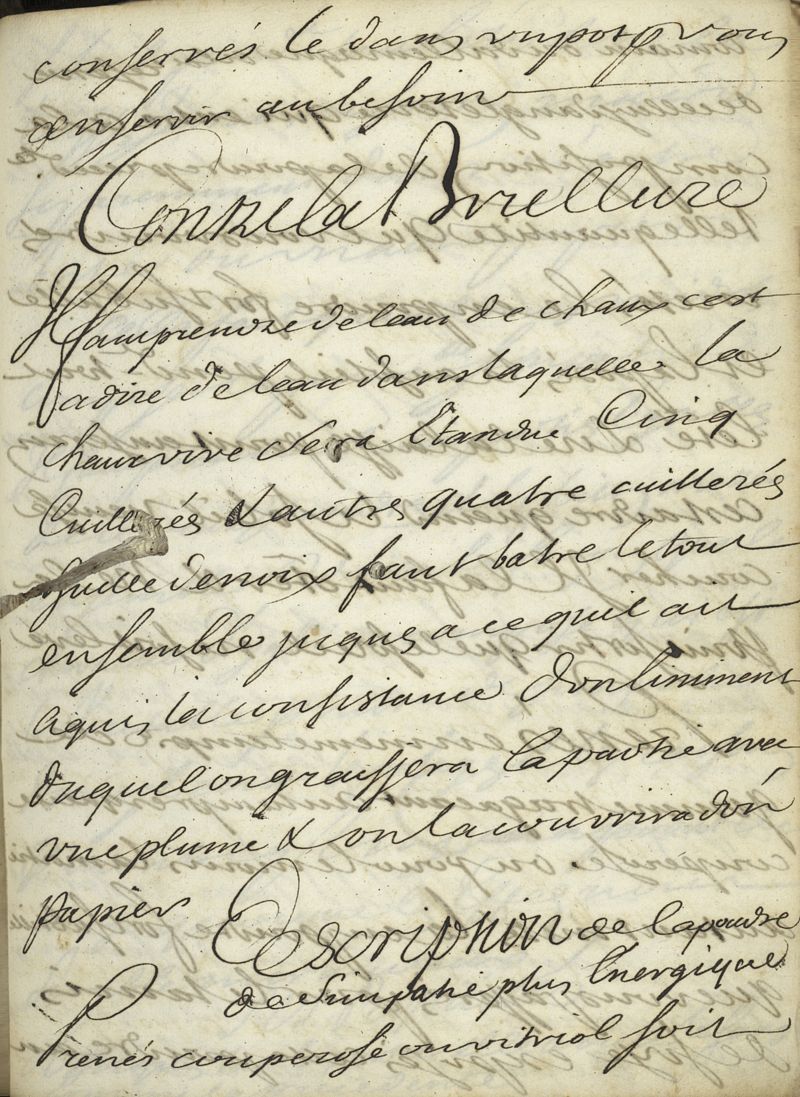 conservés le dans un pot pr vous
en servir au besoin
Contre la Brullure
Il faut prendre de leau de chaux cest
a dire de leau dans laquelle la
chaux vive sera Etandue Cinq
Cuillerés & autres quatre cuillerés
huille de noix faut batre le tout
ensemble juques a ce quil ait
aquis la consistance don liniment
duquel on graissera la partie avec
vne plume & on la couvrira don
papier
Description de la poudre
de Simpatie plus Energique
Prenés couperose ou vitriol soit